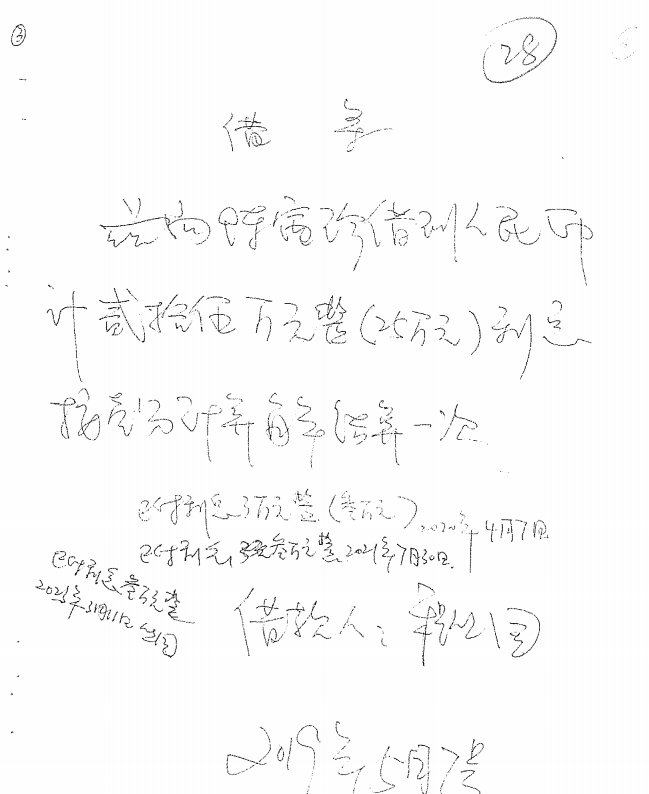 ③
28
借 条
兹向陈富珍借到人民币
计贰拾伍万元整(25万元)利息
按 分计算每年结算一次
已付利息3万元整(叁万元)2020年4月7日
已付利息 叁万元整 2021年7月30日.
已付利息叁万元整
2023年 月11日
借款人:
2019年5月7号